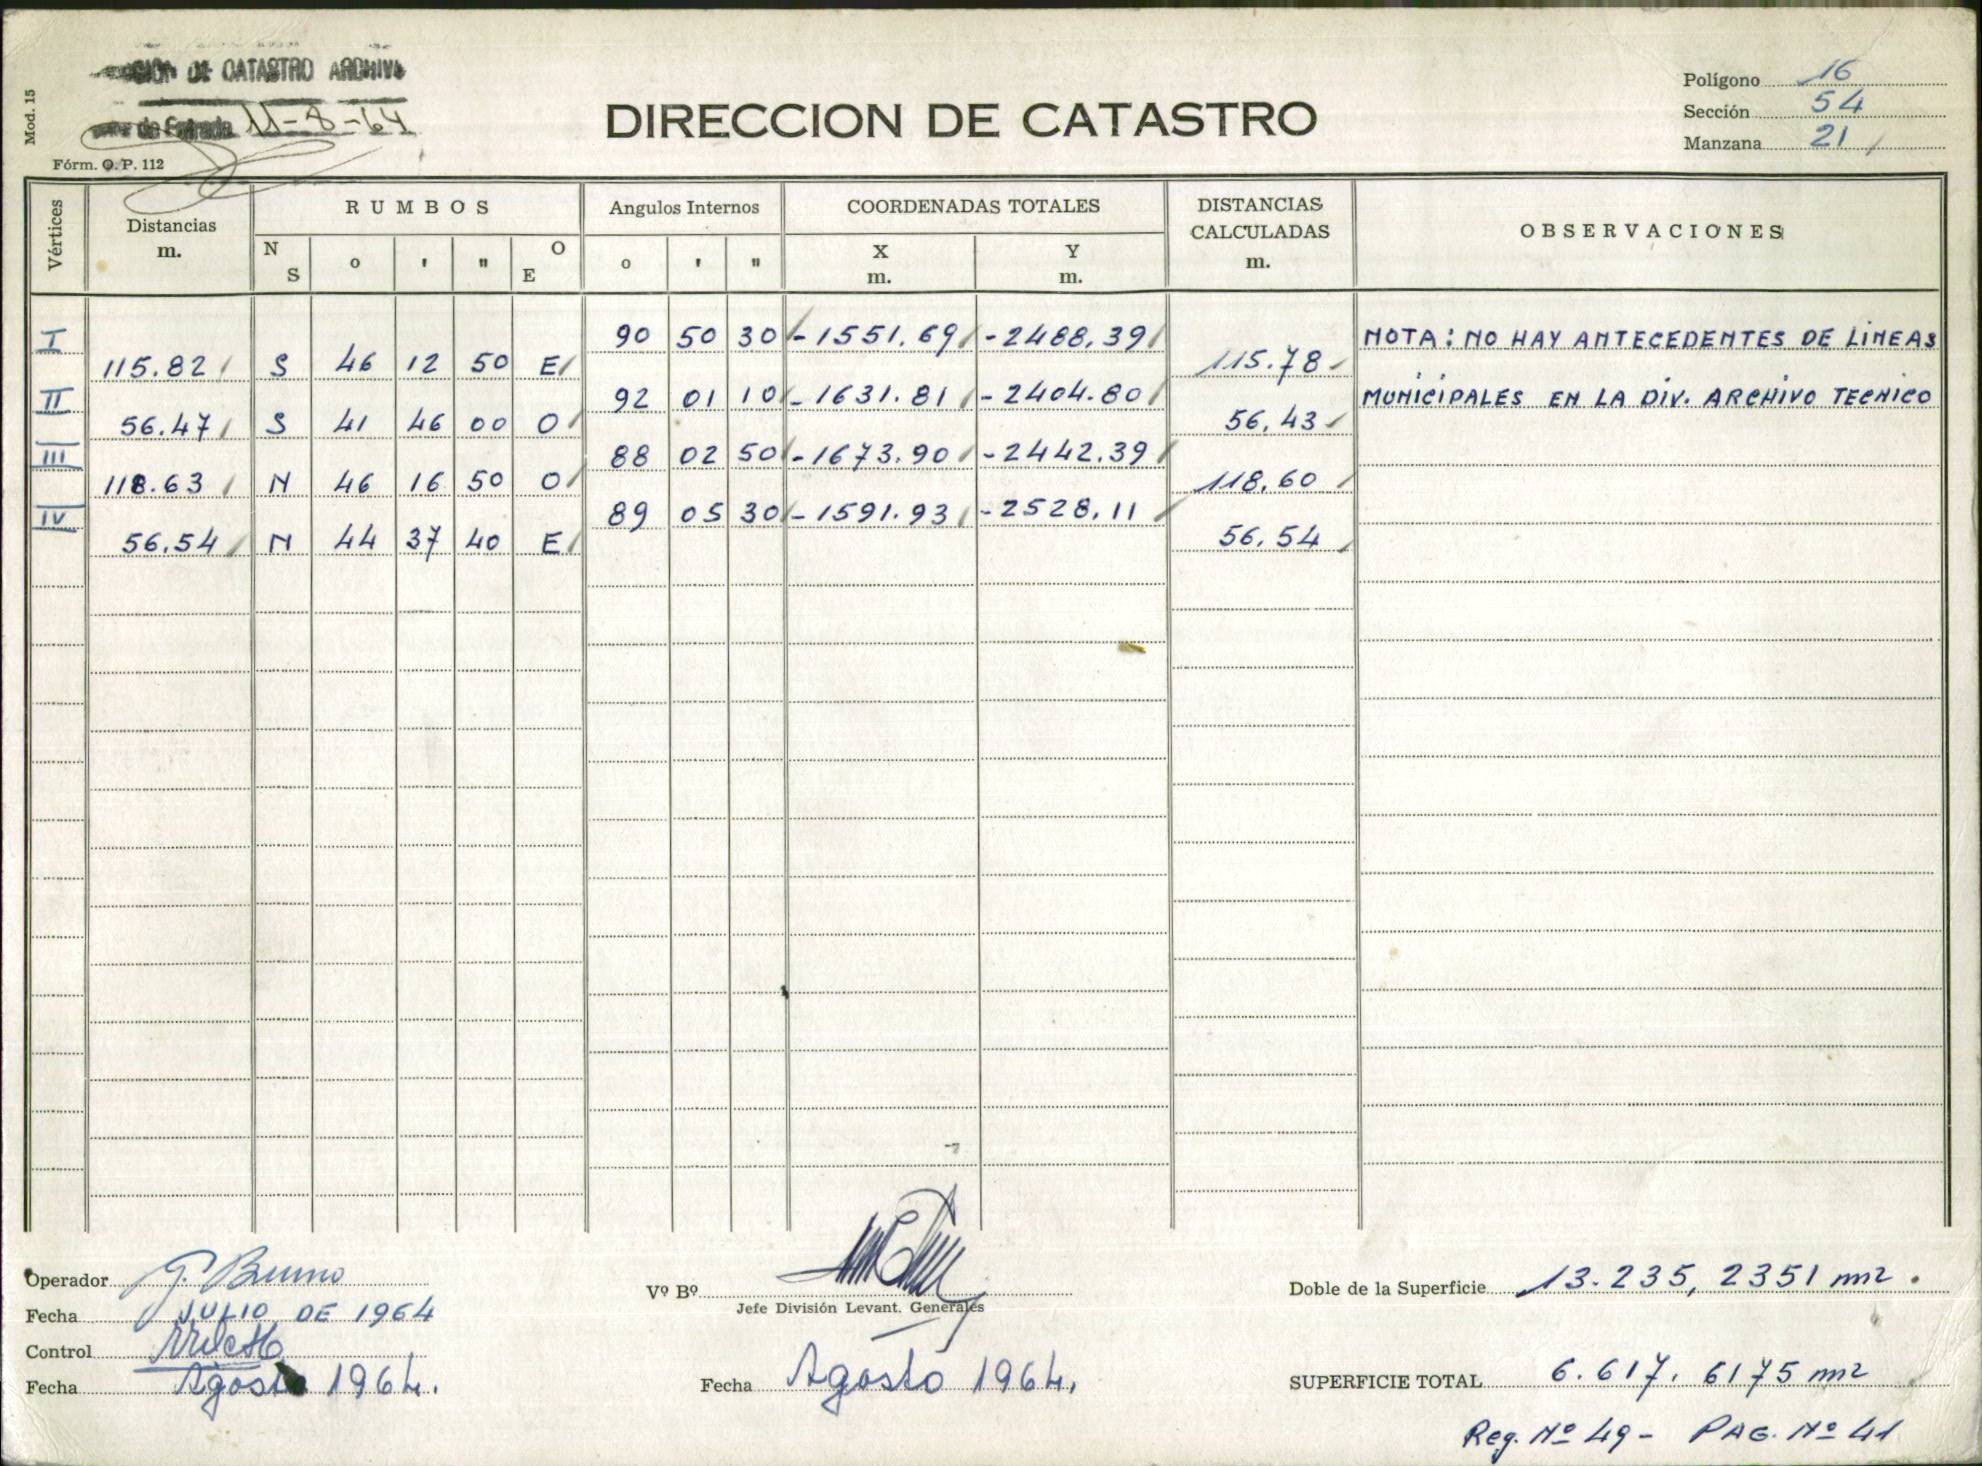 DE CATASTRO ARCHIVO
de Entrada 11-8-64
Mod. 15
Fórm. O. P. 112
DIRECCION DE CATASTRO
Polígono 16
Sección 54
Manzana 21
Vértices
Distancias m.
RUMBOS
N S o ' " O E
Angulos Internos
o ' "
COORDENADAS TOTALES
X m. Y m.
DISTANCIAS CALCULADAS m.
OBSERVACIONES
I 90 50 30 -1551.69 -2488,39 NOTA: NO HAY ANTECEDENTES DE LINEAS
115.82 S 46 12 50 E 115.78
II 92 01 10 -1631.81 -2404.80 MUNICIPALES EN LA DIV. ARCHIVO TECNICO
56.47 S 41 46 00 O 56,43
III 88 02 50 -1673.90 -2442.39
118.63 N 46 16 50 O 118,60
IV 89 05 30 -1591.93 -2528,11
56.54 N 44 37 40 E 56.54
Operador G. Bruno
Fecha JULIO DE 1964
Control
Fecha Agosto 1964.
Vº Bº
Jefe División Levant. Generales
Fecha Agosto 1964.
Doble de la Superficie 13.235,2351 m2.
SUPERFICIE TOTAL 6.617,6175 m2
Reg. Nº 49- PAG. Nº 41